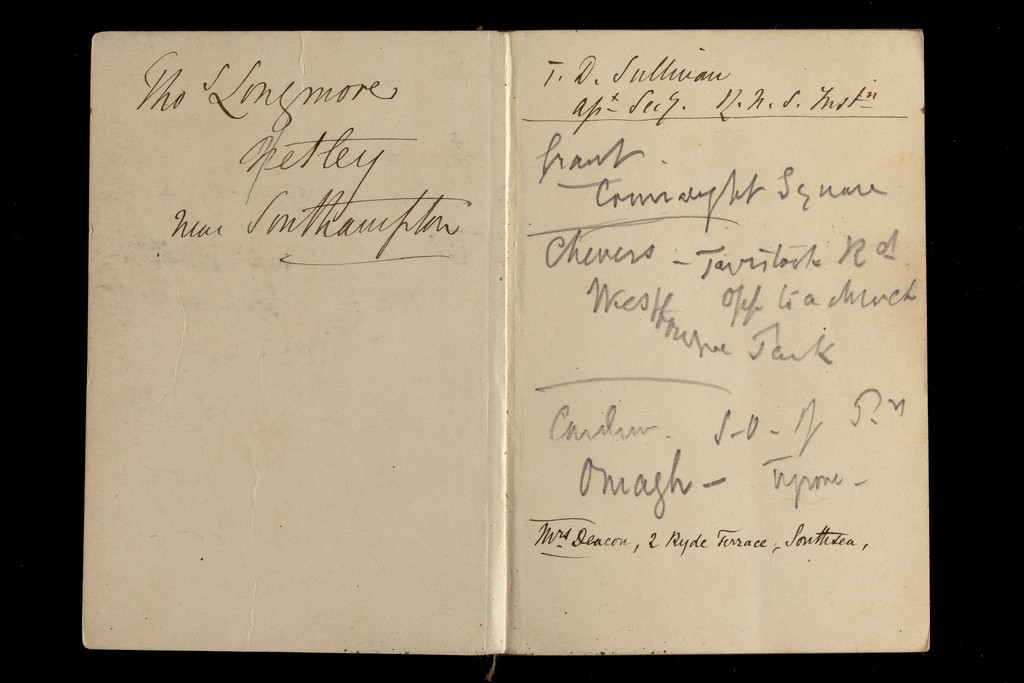 Thos Longmore
Netley
near Southampton
T. D. Sullivan
Asst Secy. R. N. S. Instn
Grant.
Connaught Square
Chevers - Tavistock Rd
Westbourne Park
opp to a church
Omagh - Tyrone -
Mrs Deacon, 2 Ryde Terrace, Southsea,